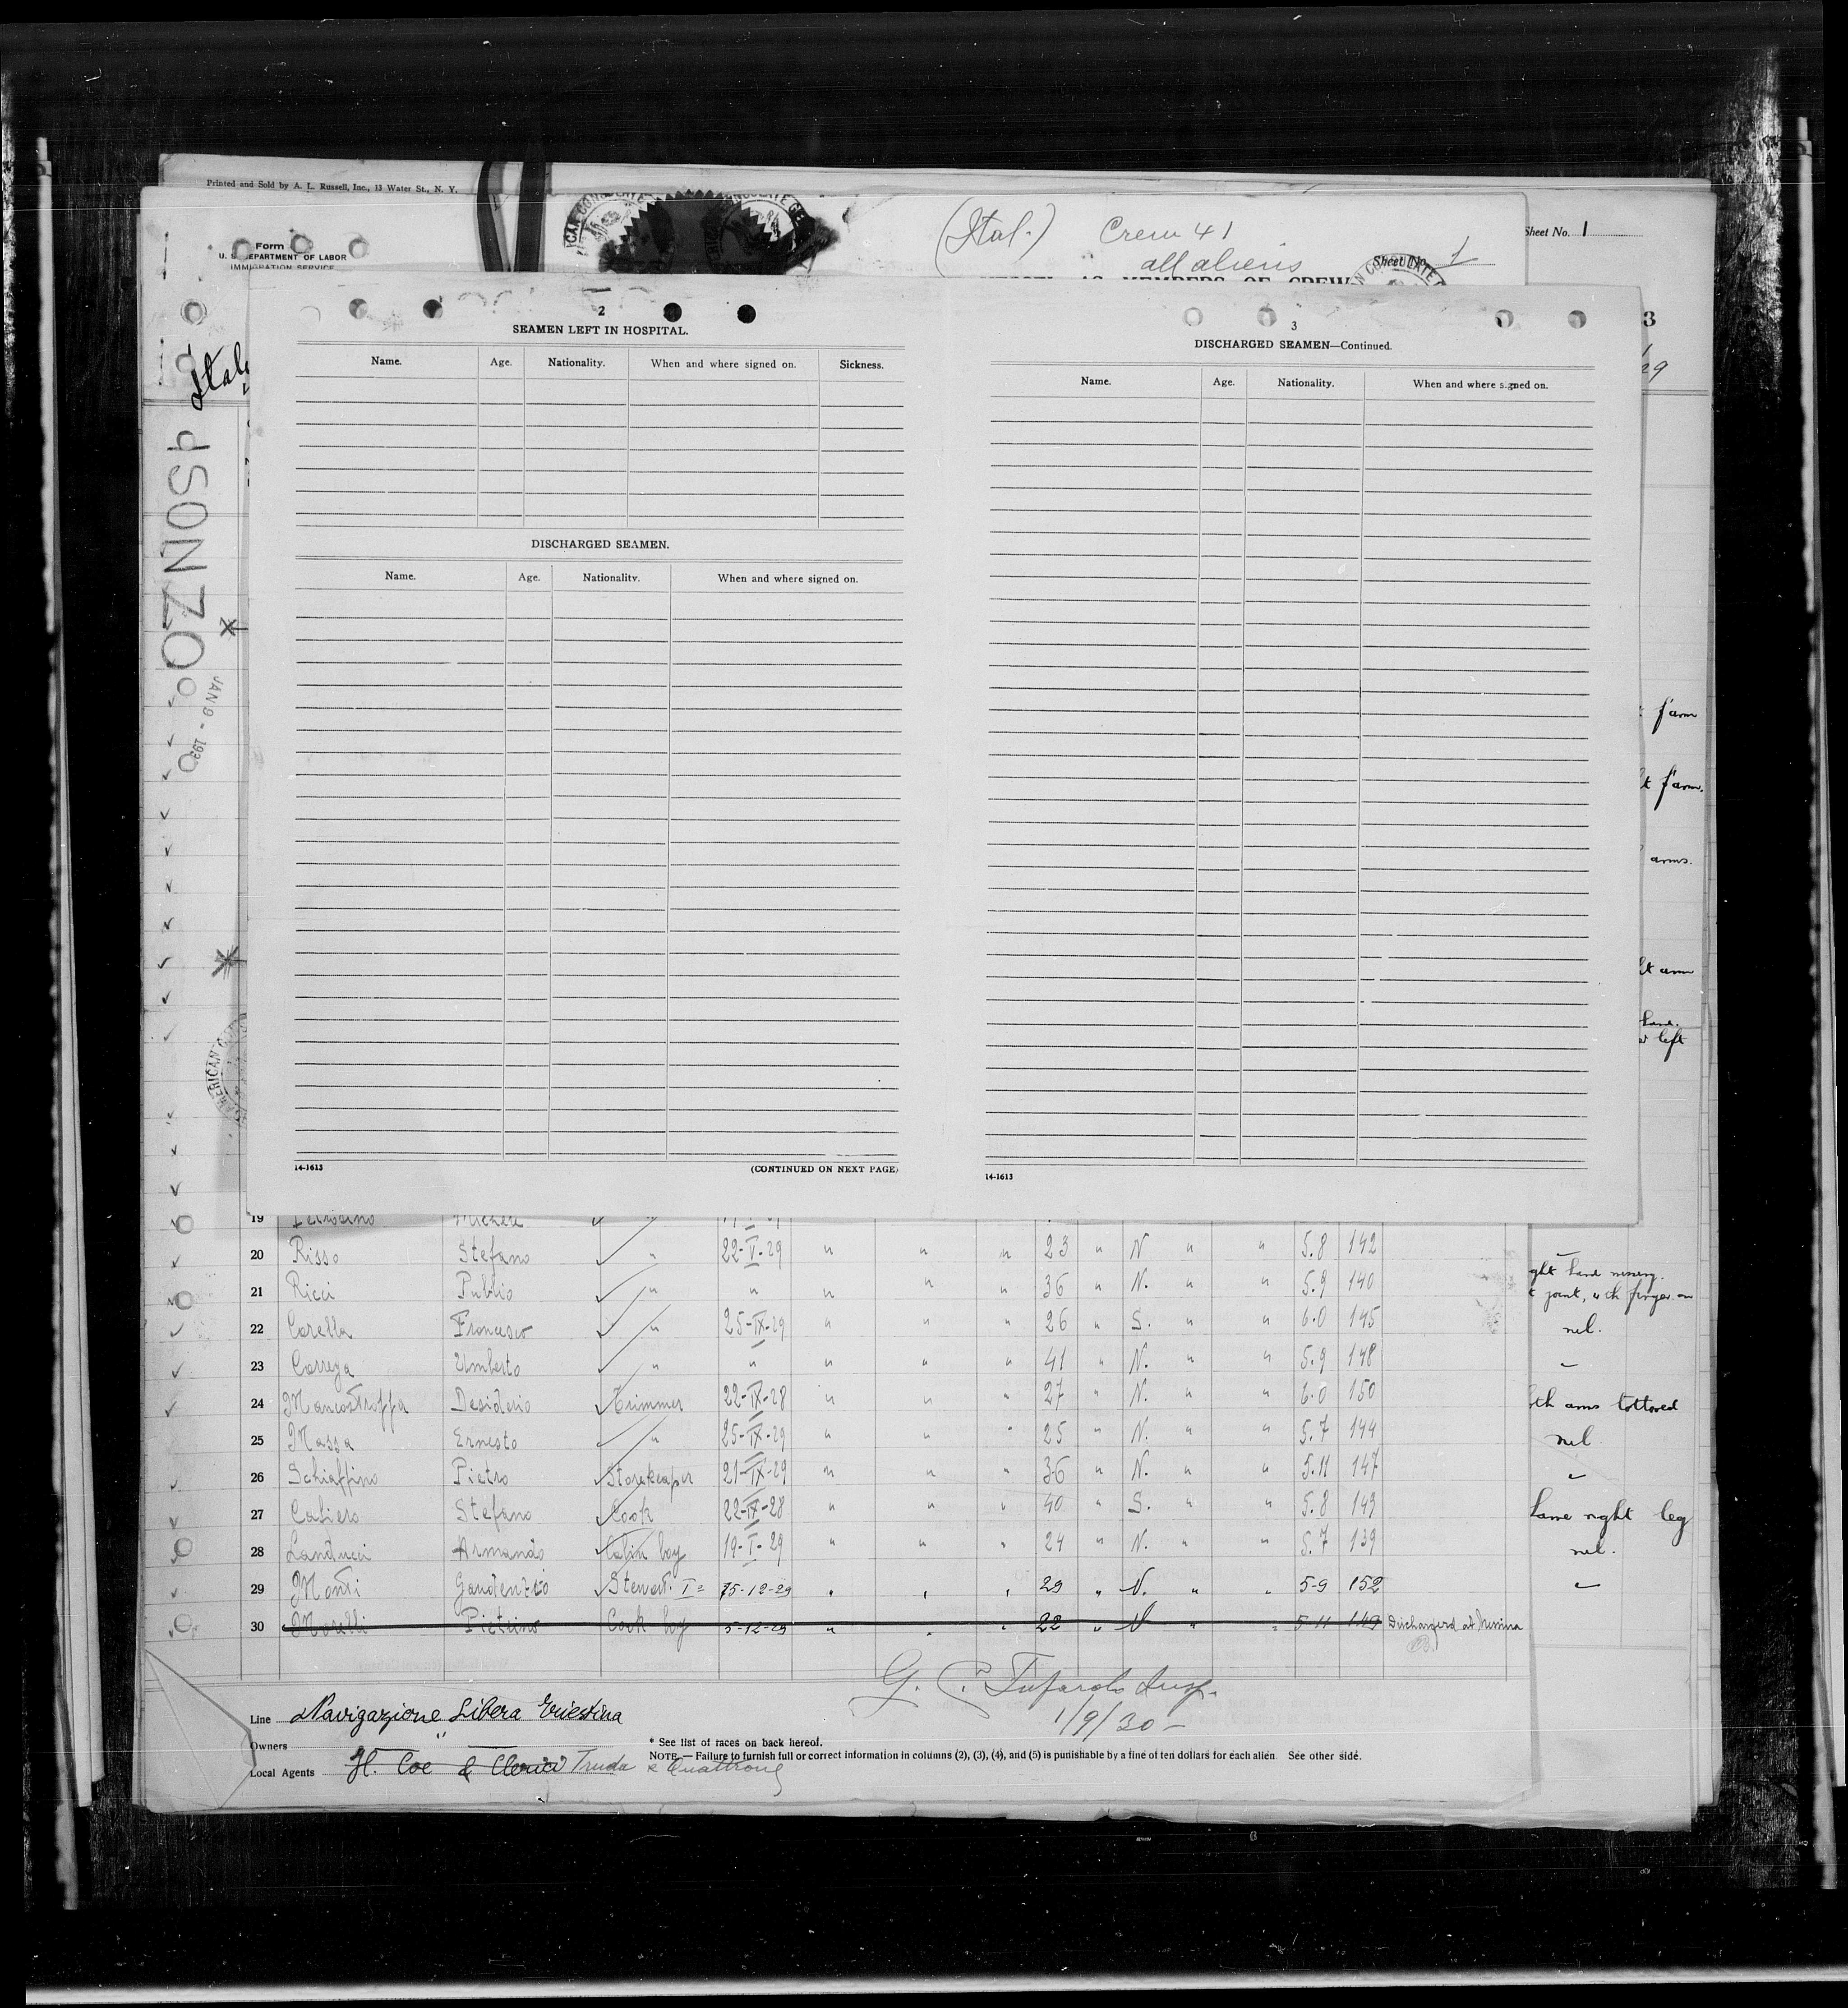 Printed and Sold by A. L. Russell, Inc., 13 Water St., N. Y.
Form
U. S. DEPARTMENT OF LABOR
IMMIGRATION SERVICE
(Ital.) Crew 41
all aliens
Sheet No. 1
Sheet No. 1
MEMBERS OF CREW
3
29
Ital
ISONZO
JAN 9 - 1930
AMERICAN
2
SEAMEN LEFT IN HOSPITAL.
Name. Age. Nationality. When and where signed on. Sickness.
DISCHARGED SEAMEN.
Name. Age. Nationality. When and where signed on.
14-1613 (CONTINUED ON NEXT PAGE)
3
DISCHARGED SEAMEN—Continued.
Name. Age. Nationality. When and where signed on.
14-1613
farm
farm.
arms.
arm
left
19 Michele
20 Risso Stefano " 22-V-29 " " " 23 " N " " 5.8 142
21 Ricci Publio " " " " 36 " N. " " 5.9 140
22 Carella Francesco " 25-IX-29 " " " 26 " S. " " 6.0 145 nil.
23 Carrega Umberto " " " " " 41 " N. " " 5.9 148 "
24 Mancastroffa Desiderio Trimmer 22-IX-28 " " " 27 " N. " " 6.0 150 arms tottoved
25 Massa Ernesto " 25-IX-29 " " " 25 " N. " " 5.7 144 nil
26 Schiaffino Pietro Storekeaper 21-IX-29 " " " 36 " N. " " 5.11 147 "
27 Cafiero Stefano Cook 22-IX-28 " " " 40 " S. " " 5.8 143 lame right leg
28 Landucci Armando Cabin boy 19-I-29 " " " 24 " N. " " 5.7 139 nil.
29 Monti Gaudenzio Stewart I° 15-12-29 " " " 29 " N. " " 5-9 152 "
30 Morelli Pietrino Cook boy 5-12-29 " " " 22 " N " " 5-11 149 Dischargerd at Messina
G. Insp.
1/9/30
Line Navigazione Libera Triestina
Owners "
Local Agents H. Coe & Clerici Truda & Quattrone
* See list of races on back hereof.
NOTE.—Failure to furnish full or correct information in columns (2), (3), (4), and (5) is punishable by a fine of ten dollars for each alien. See other side.